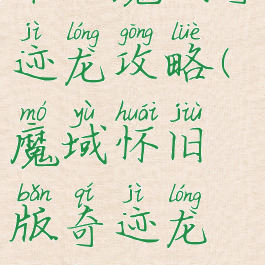 jì lóng gōng lüè
迹龙攻略(
mó yù huái jiù
魔域怀旧
bǎn qí jì lóng
版奇迹龙